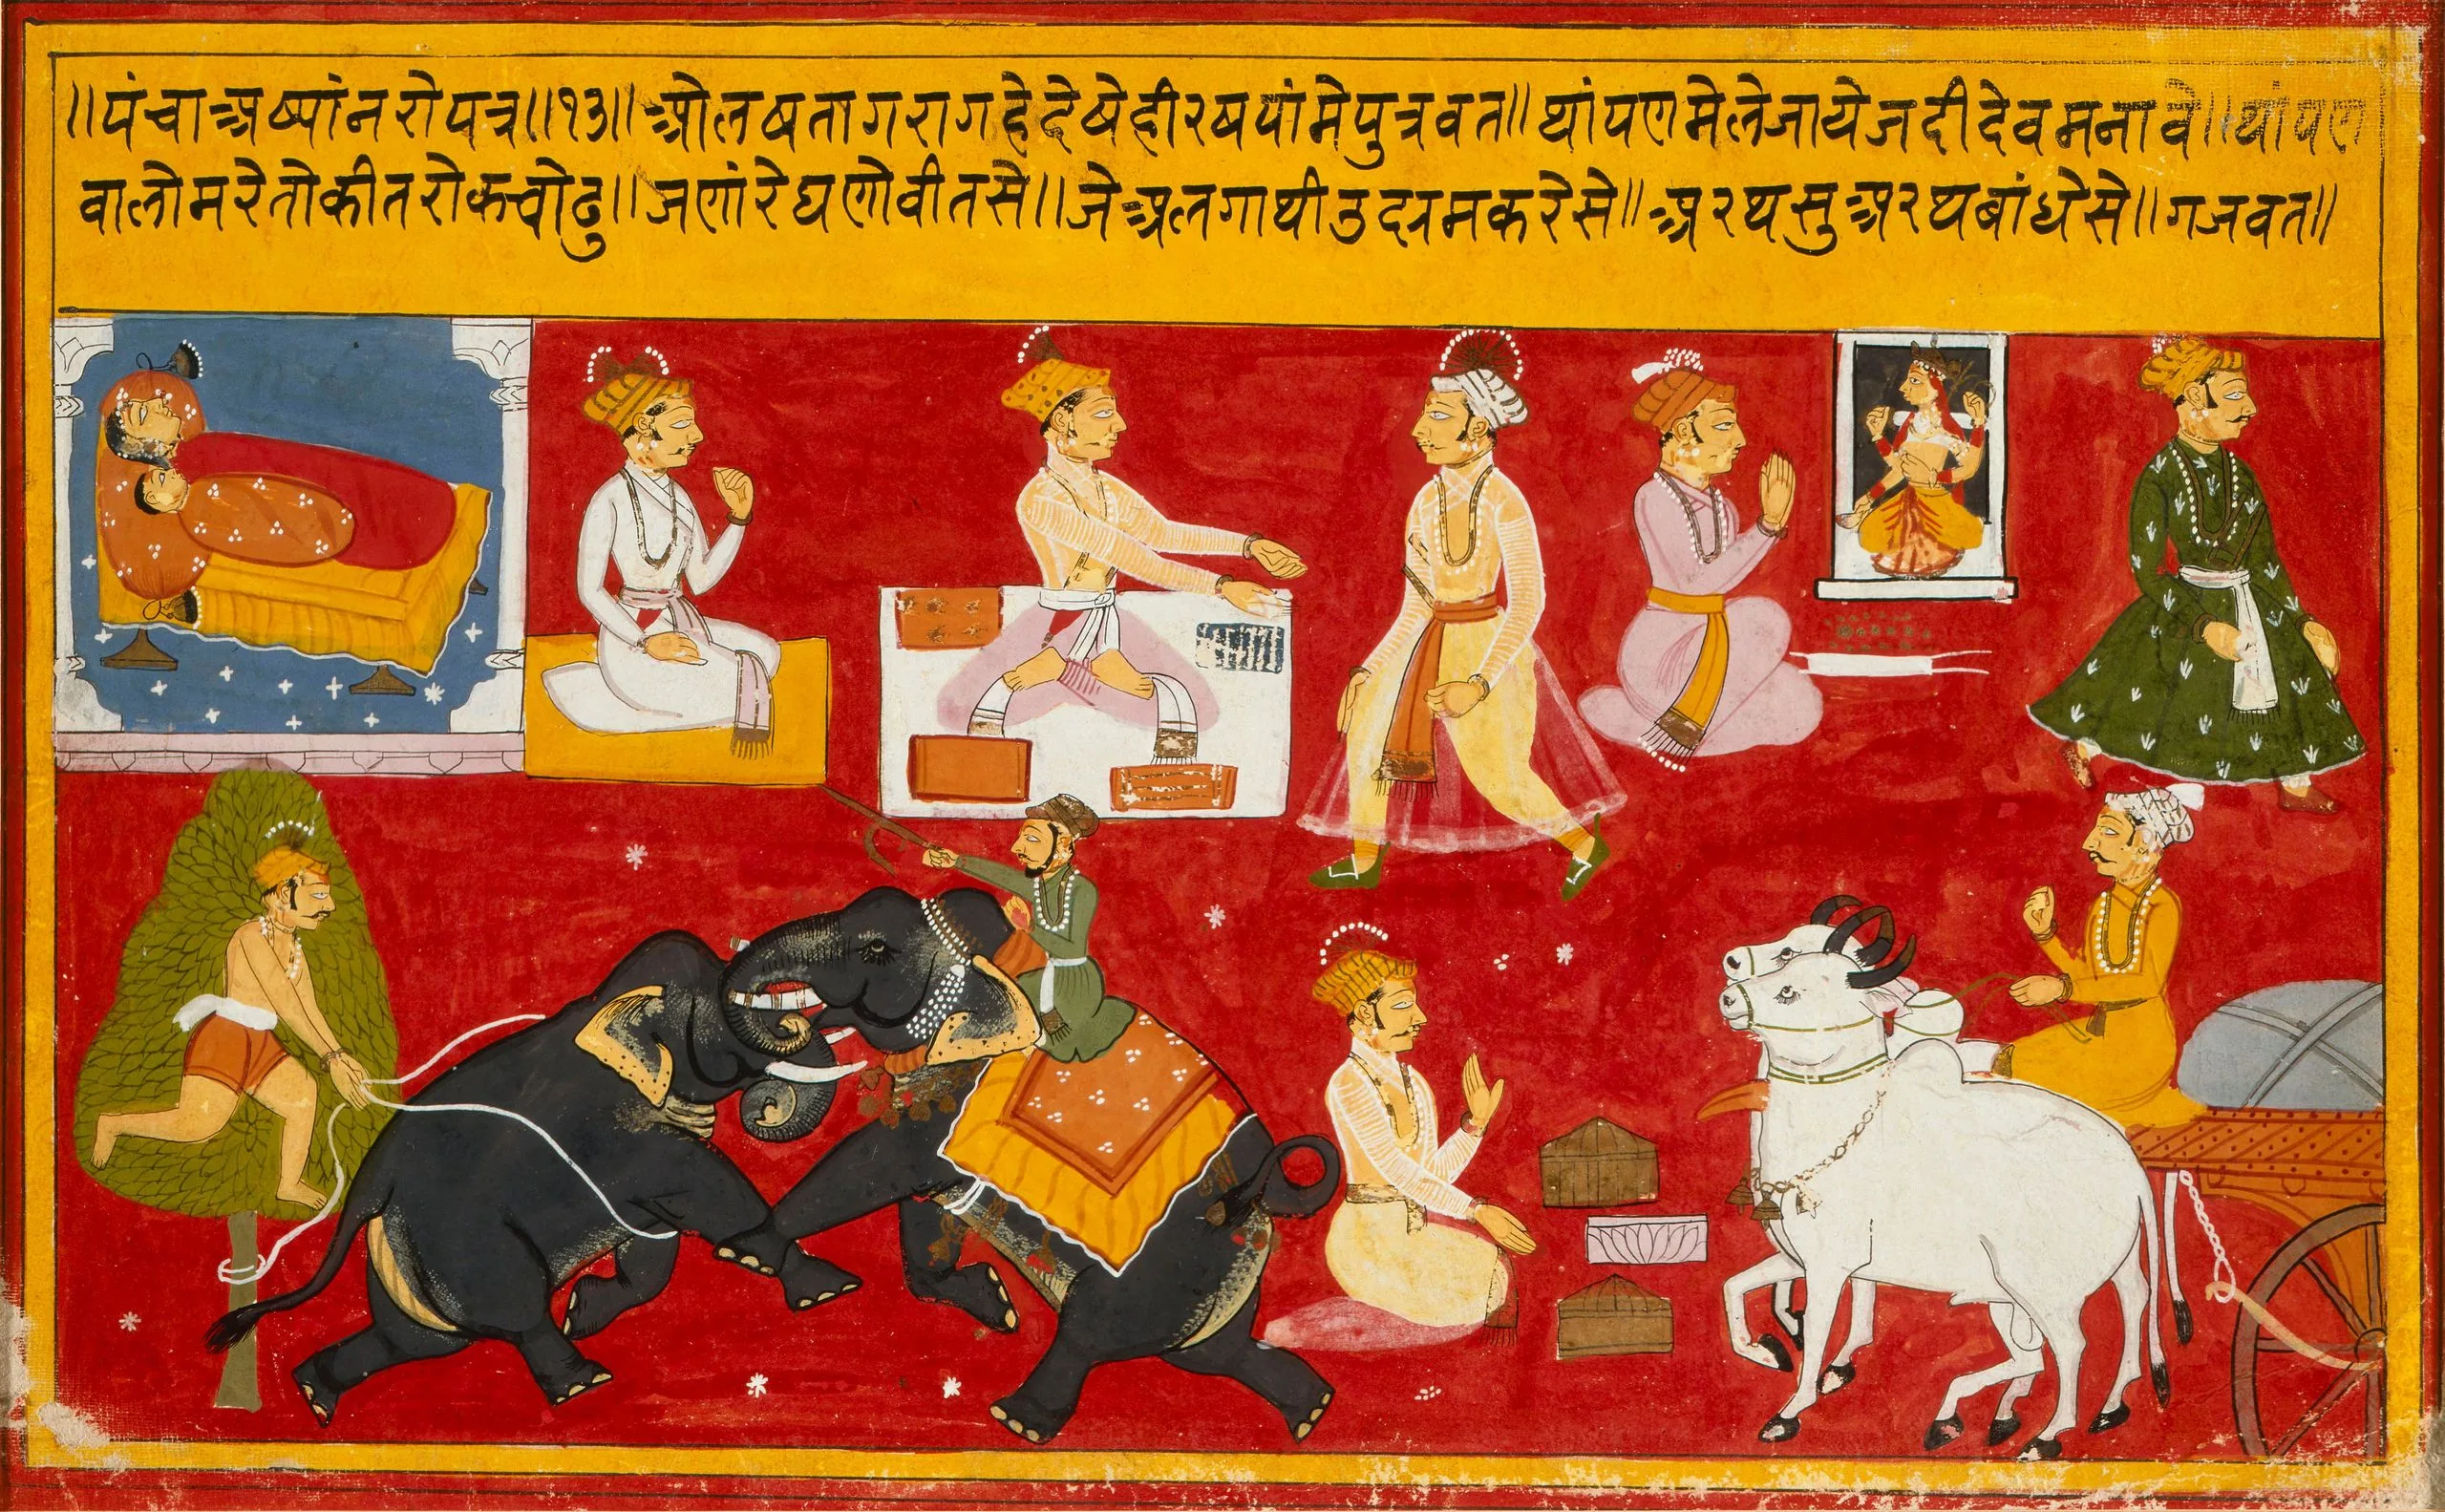 ॥पंचाअष्यांनरोपत्र॥१३॥ओलषतागरागहेदेषेहीरषयांमेपुत्रवत॥थांपणमेलेजायेजदीदेवमनावे॥थांपण
वालोमरेतोकीतरोकचोढु॥जणांरेघणोवीतसे॥जेअलगाथीउदरमकरेसे॥अरथसुअरथबांधेसे॥गजवत॥